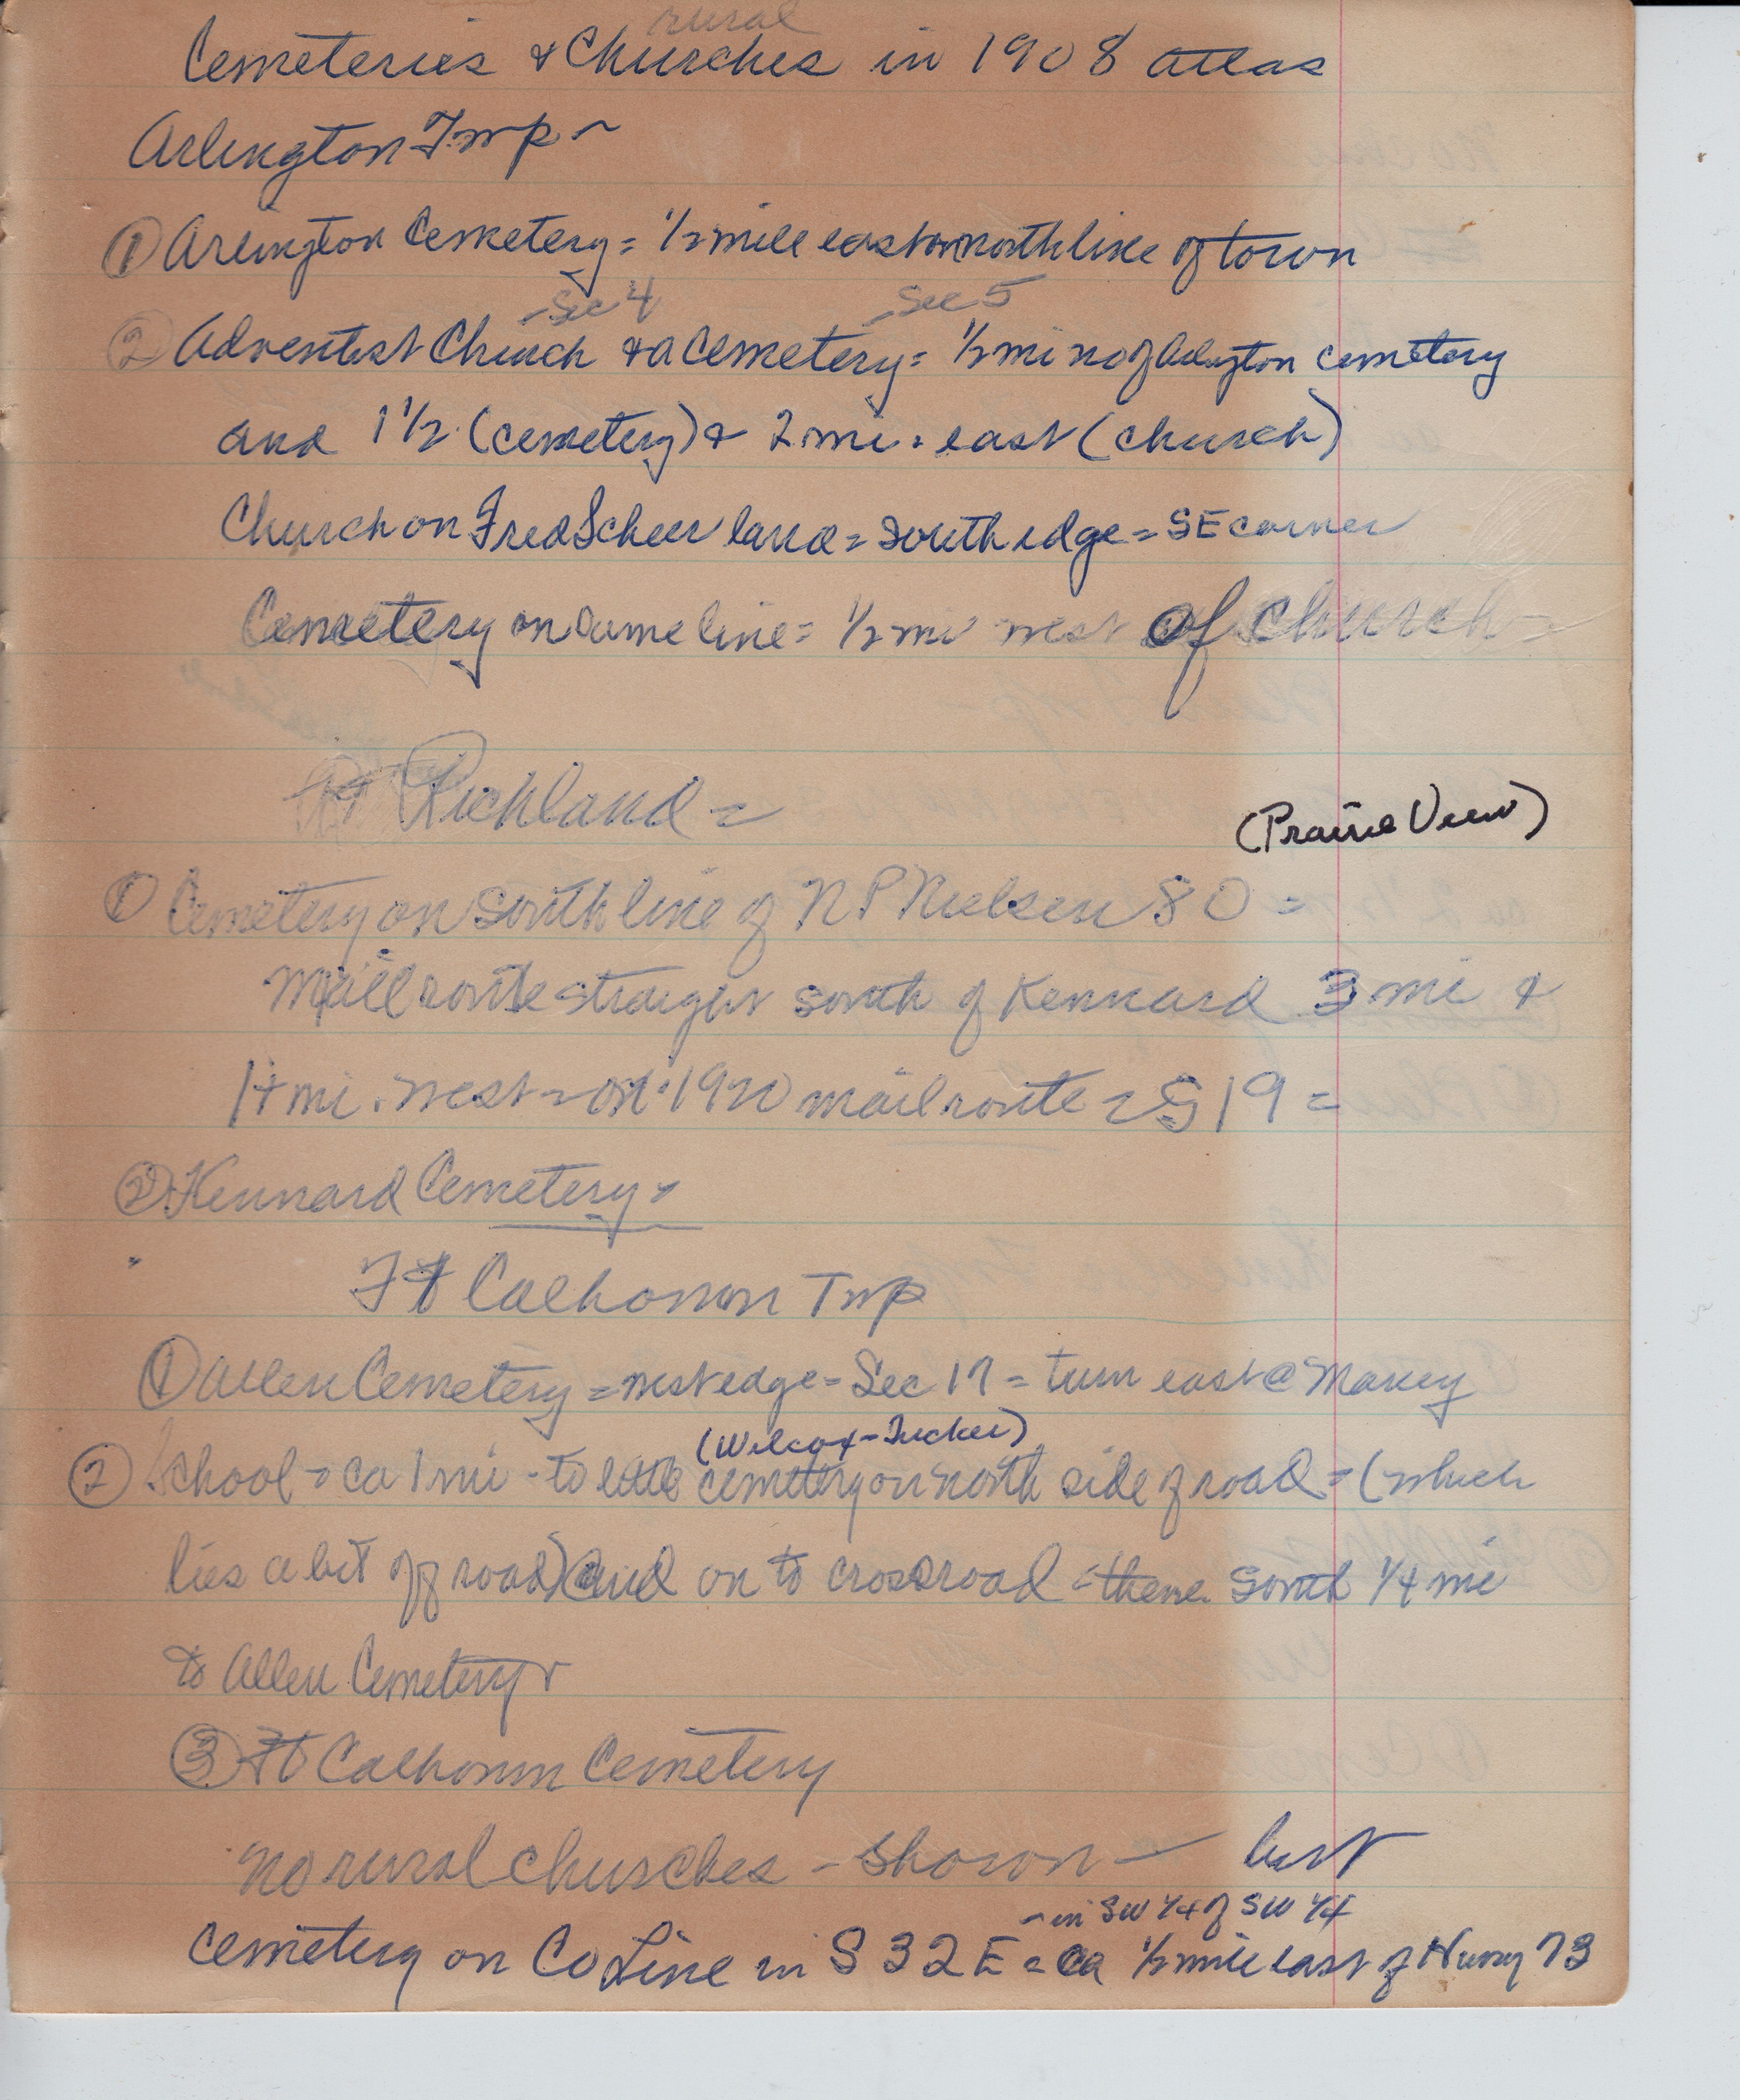 rural
Cemeteries & Churches in 1908 atlas
Arlington Twp -
① Arlington Cemetery = 1/2 mile east on north line of town
- Sec 4 - Sec 5
② Adventist Church & a Cemetery = 1/2 mi no of Arlington cemetery
and 1 1/2 (cemetery) & 2 mi. east (church)
Church on Fred Scheer land = South edge = SE corner
Cemetery on same line = 1/2 mi west of church -
Richland =
(Prairie View)
① Cemetery on South line of N P Nielsen 80 =
Mail route straight south of Kennard 3 mi &
1+ mi. west = on 1920 mail route = S 19 =
② Kennard Cemetery =
Ft Calhoun Twp
① Allen Cemetery = west edge = Sec 17 = turn east @ Maney
(Wilcox-Tucker)
② School = ca 1 mi - to little cemetery on north side of road = (which
lies a bit off road) and on to crossroad = thence South 1/4 mi
to Allen Cemetery
③ Ft Calhoun Cemetery
No rural churches - shown - but
- in SW 1/4 of SW 1/4
Cemetery on Co Line in S 32 E = ca 1/2 mile east of Hwy 73